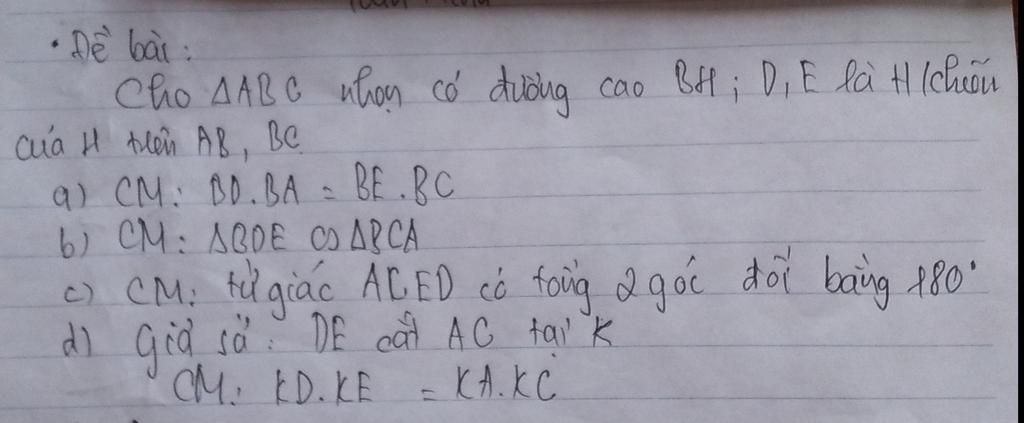 • Đề bài:
Cho ΔABC nhọn có đường cao BH; D, E là H/chiếu
của H trên AB, BC
a) CM: BD.BA = BE.BC
b) CM: ΔBDE ∽ ΔBCA
c) CM: tứ giác ACED có tổng 2 góc đối bằng 180°
d) Giả sử: DE cắt AC tại K
CM: KD.KE = KA.KC